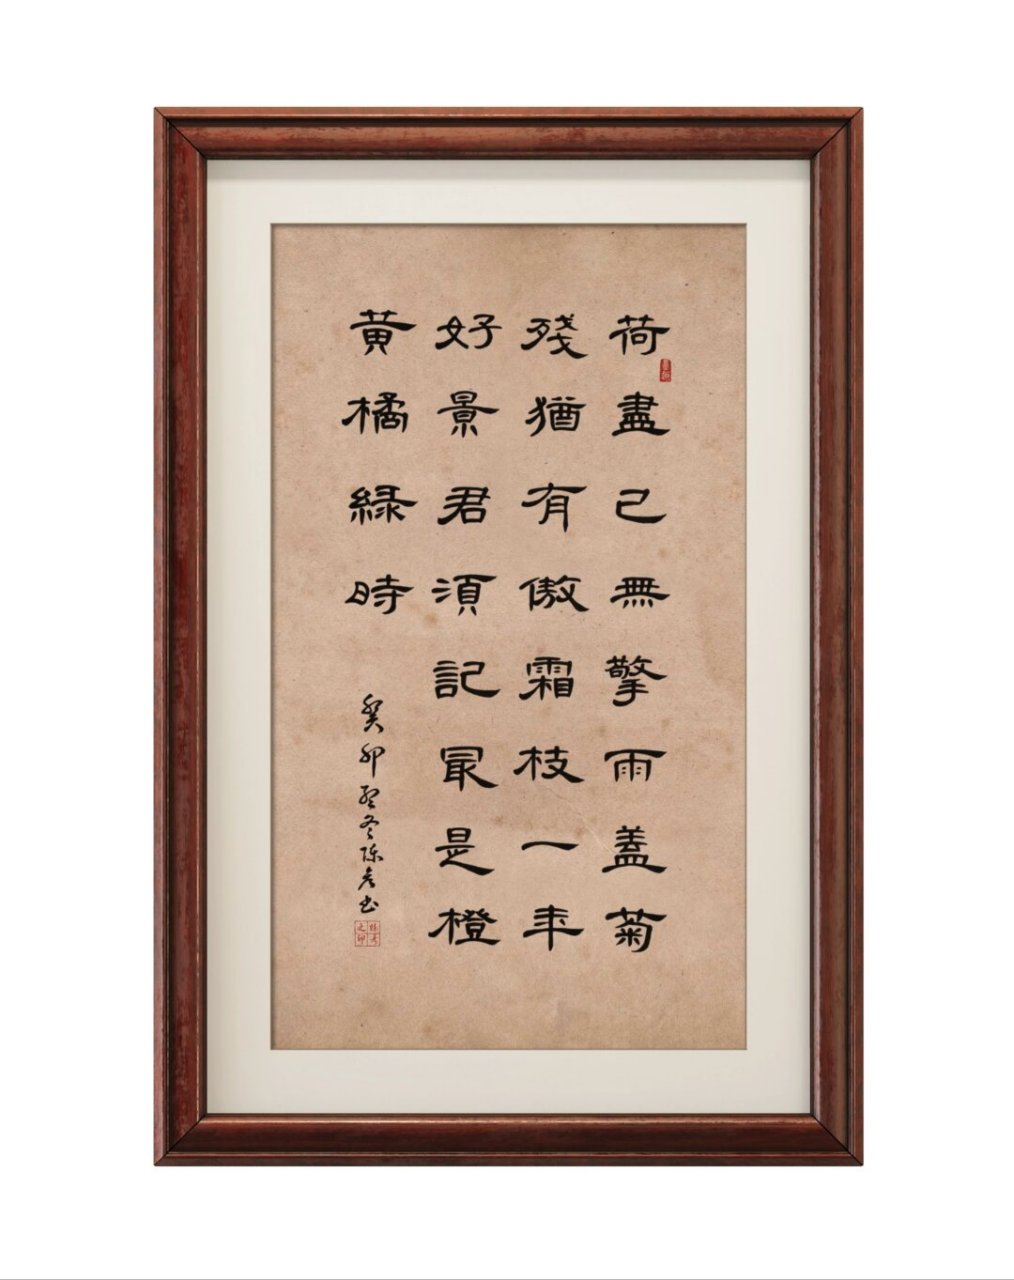 荷盡已無擎雨蓋菊
殘猶有傲霜枝一年
好景君須記最是橙
黃橘綠時
癸卯孟冬陈彦书